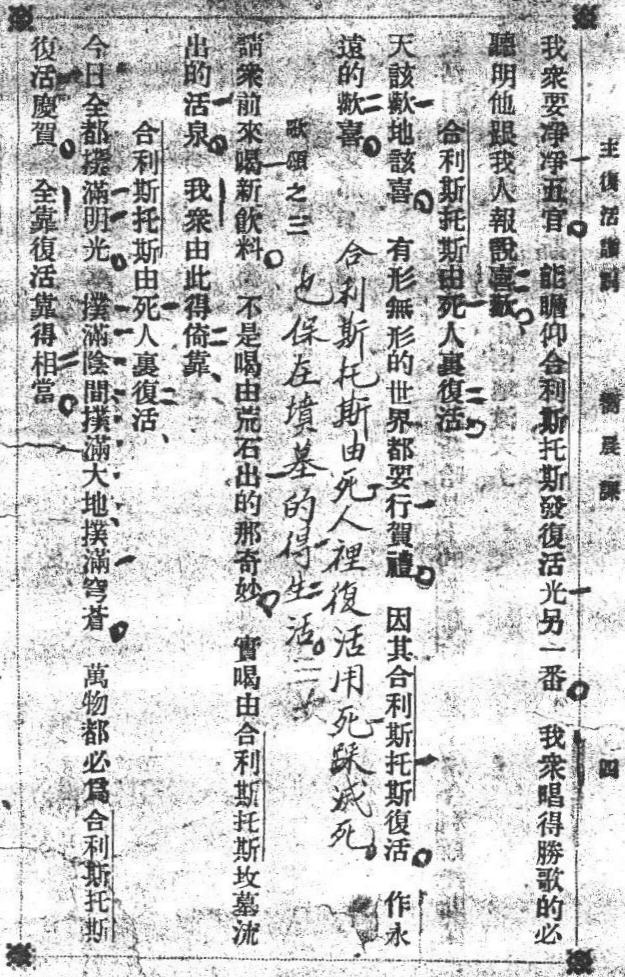 主復活讚詞 響晨課 四
我衆要凈凈五官 能瞻仰合利斯托斯發復活光另一番 我衆唱得勝歌的必
聽明他跟我人報說喜歡
合利斯托斯由死人裏復活
天該歡地該喜 有形無形的世界都要行賀禮 因其合利斯托斯復活 作永
遠的歡喜
合利斯托斯由死人裡復活用死踩滅死
也保在墳墓的得生活二次
歌頌之三
請衆前來喝新飲料 不是喝由荒石出的那奇妙 實喝由合利斯托斯坟墓流
出的活泉 我衆由此得倚靠
合利斯托斯由死人裏復活
今日全都撲滿明光 撲滿陰間撲滿大地撲滿穹蒼 萬物都必爲合利斯托斯
復活慶賀 全靠復活靠得相當